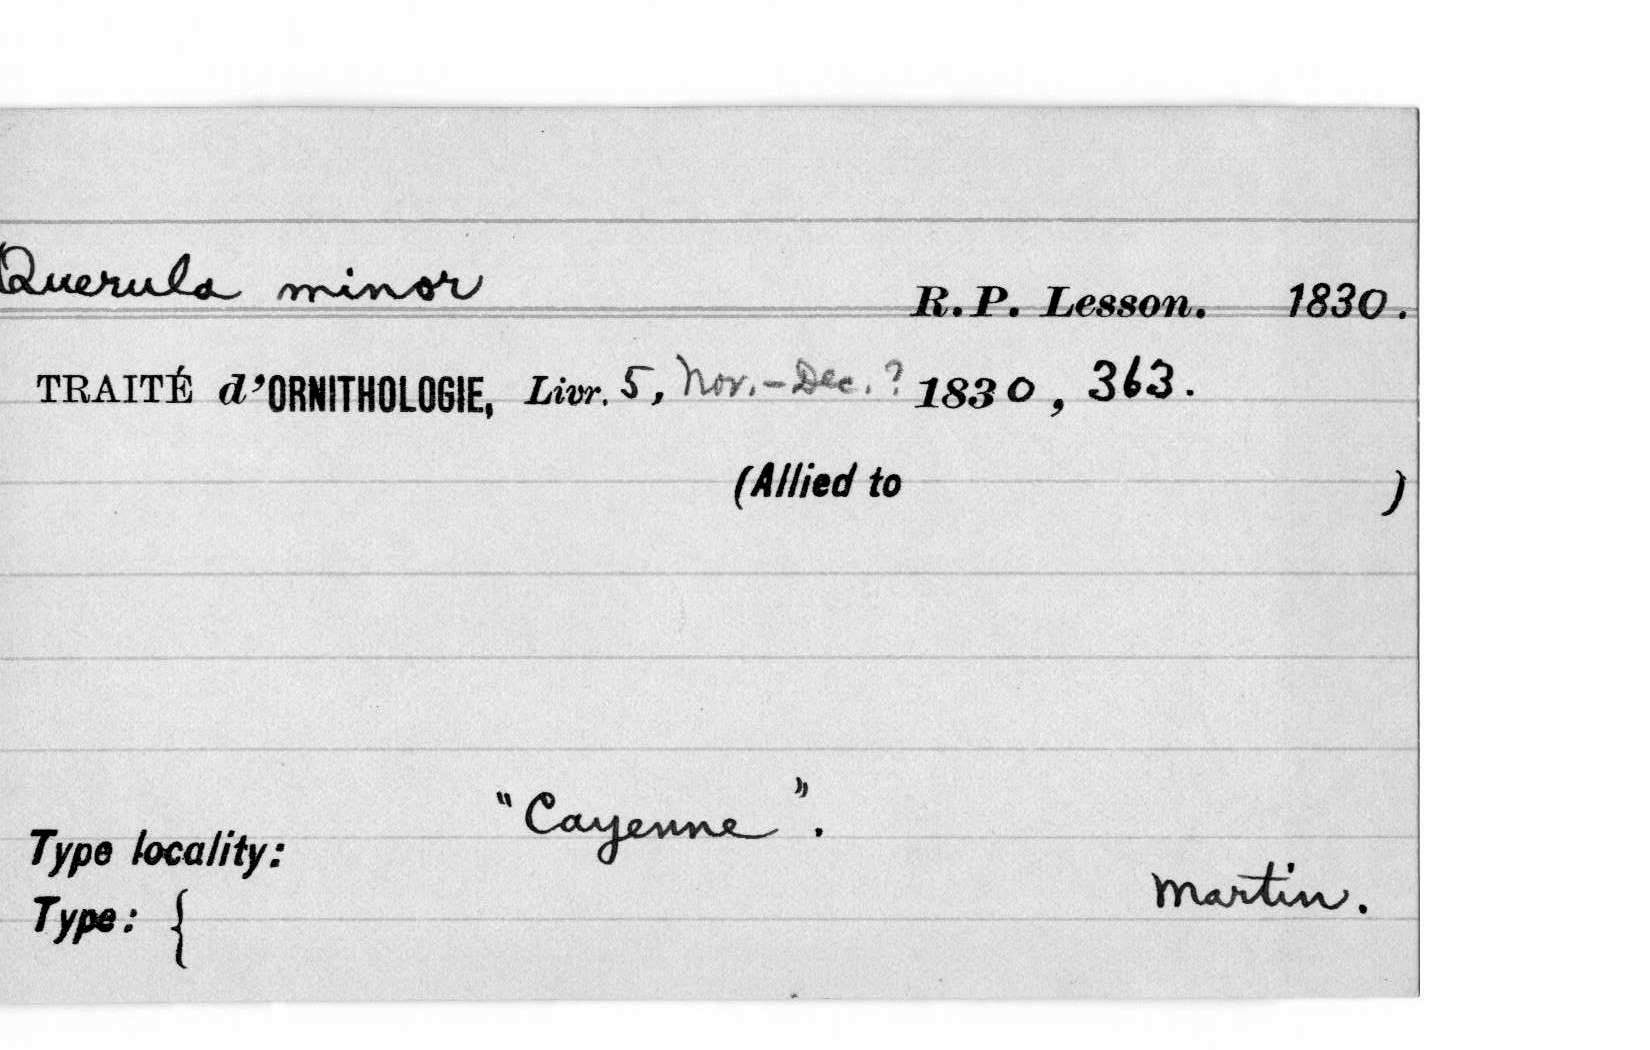 Querula minor R. P. Lesson. 1830.
TRAITÉ d'ORNITHOLOGIE, Livr. 5, Nov.-Dec.? 1830, 363.
(Allied to )
"Cayenne".
Type locality:
Martin.
Type: {